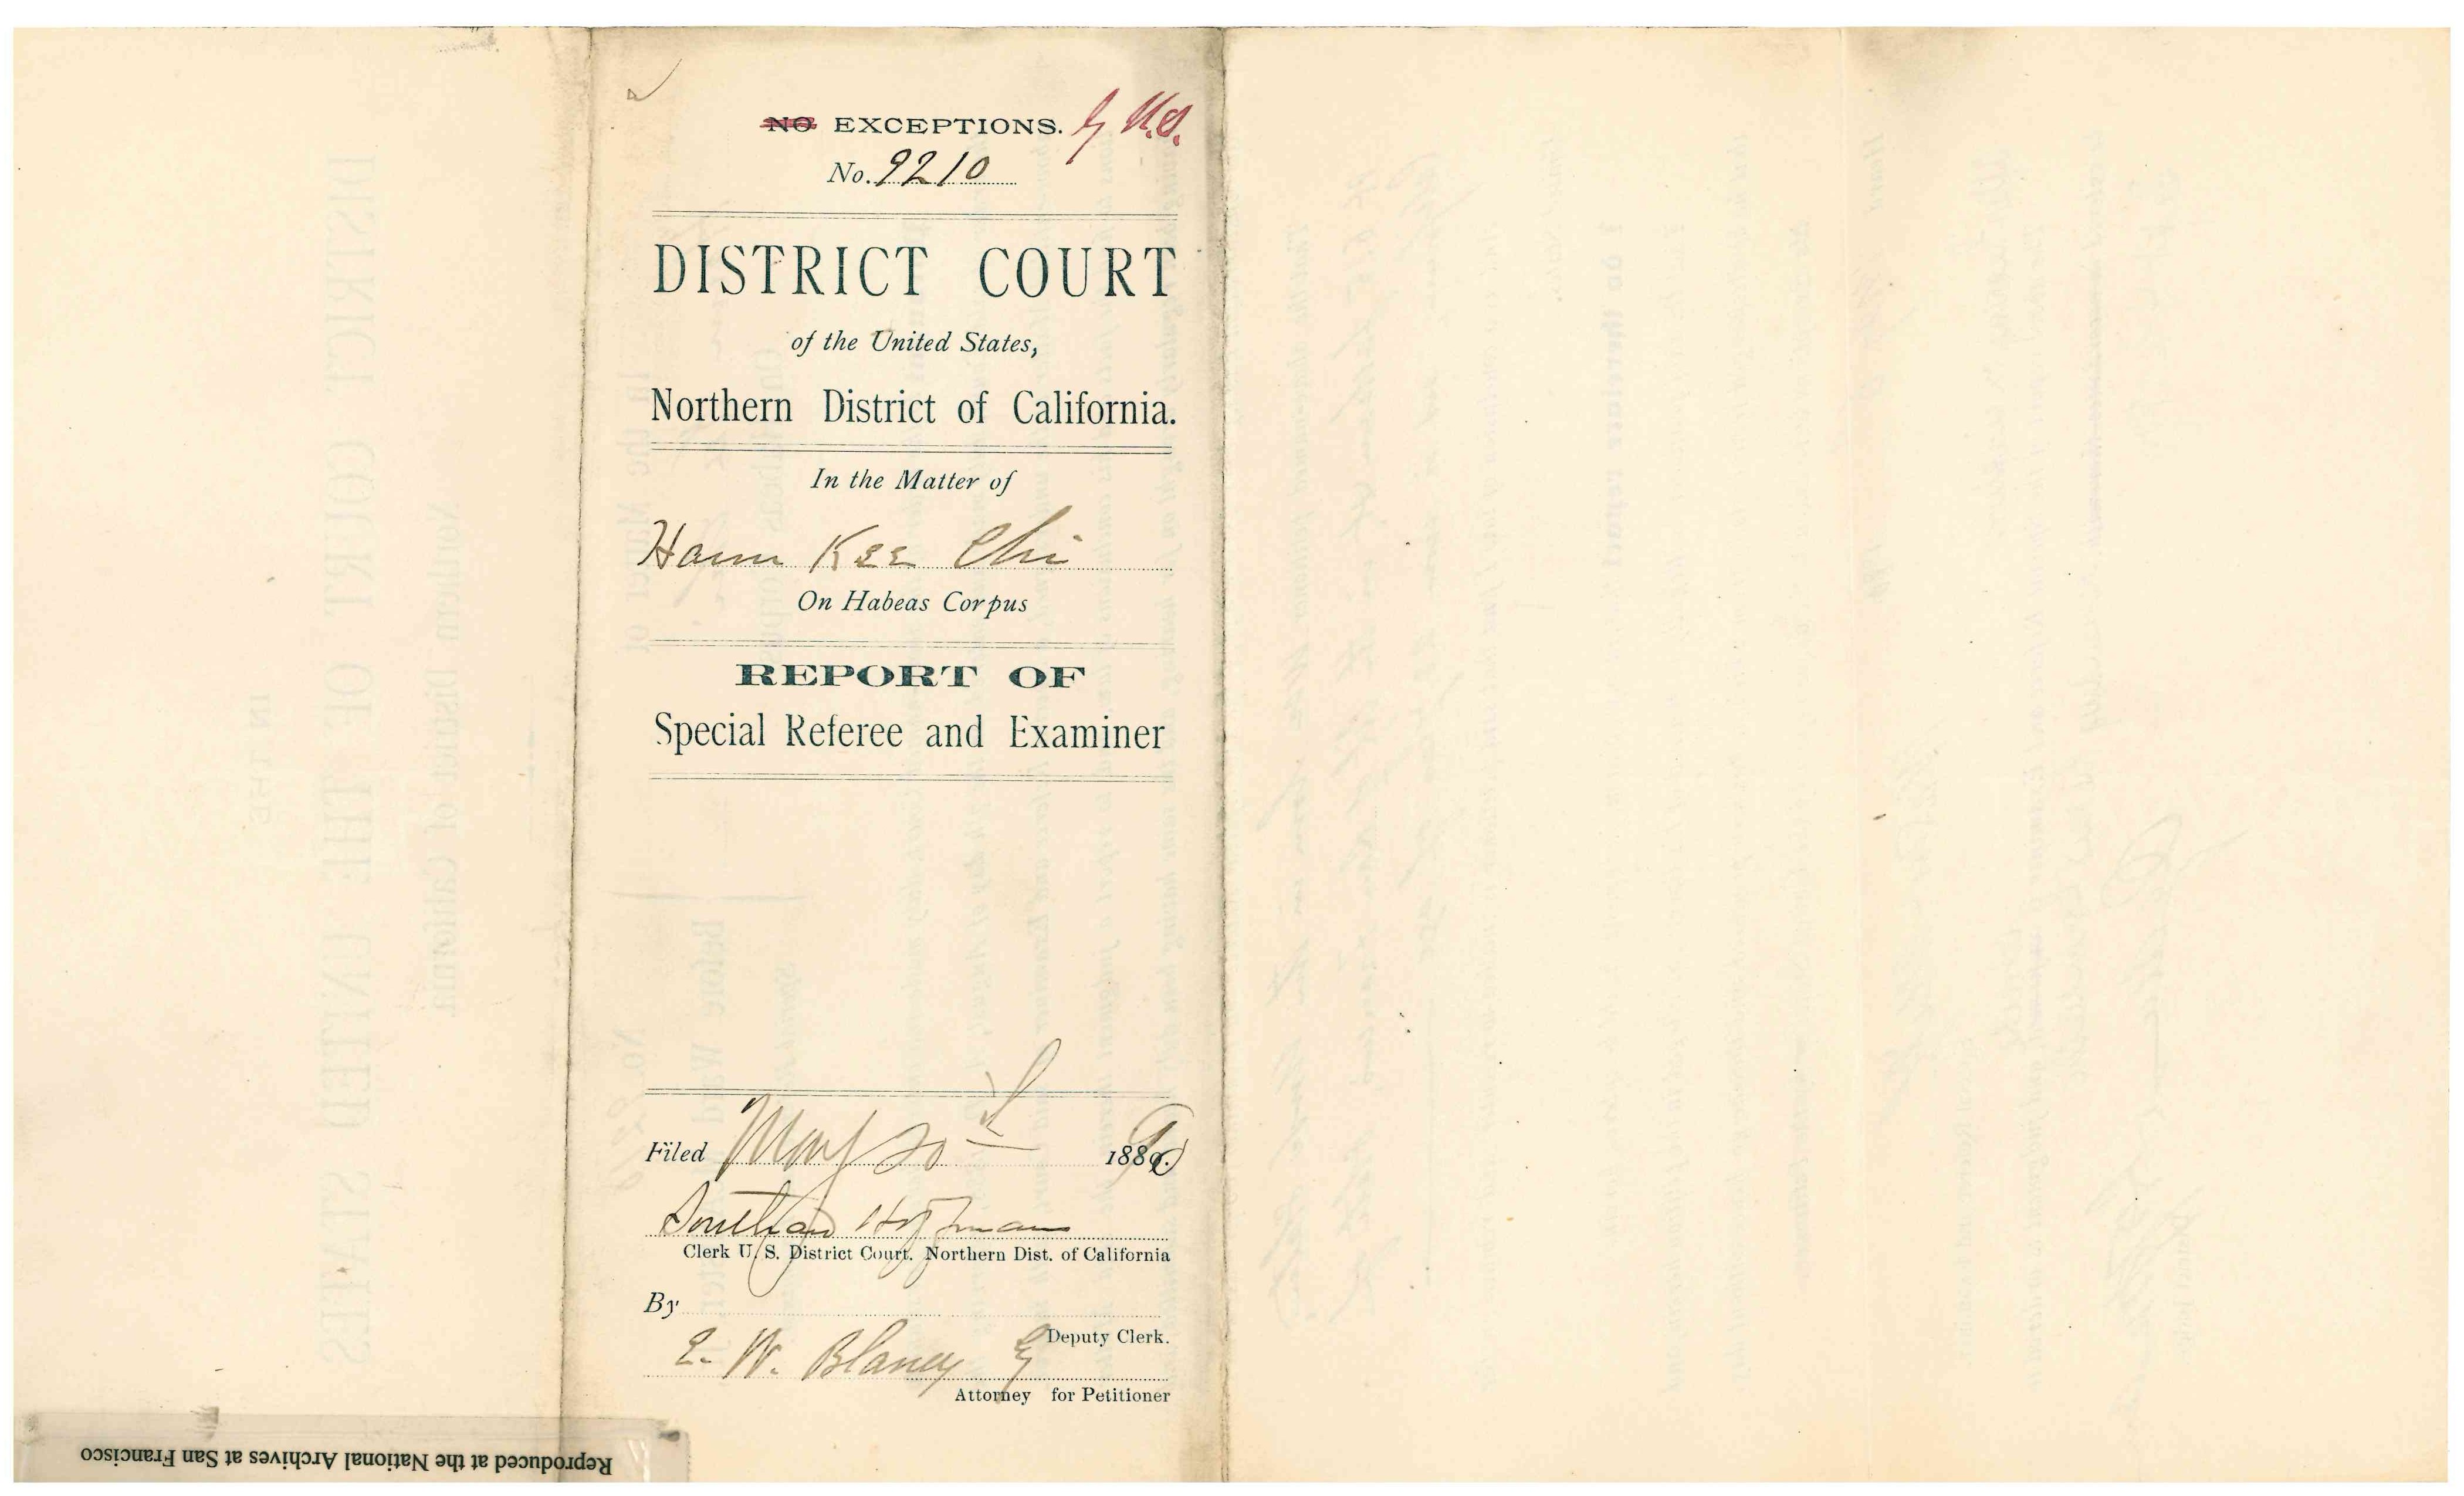 NO EXCEPTIONS. by U.S.
No. 9210
DISTRICT COURT
of the United States,
Northern District of California.
In the Matter of
Haum Kee Chi
On Habeas Corpus
REPORT OF
Special Referee and Examiner
Filed May 20th 1890
Southard Hoffman
Clerk U. S. District Court. Northern Dist. of California
By
Deputy Clerk.
E. W. Blaney Esq
Attorney for Petitioner
Reproduced at the National Archives at San Francisco